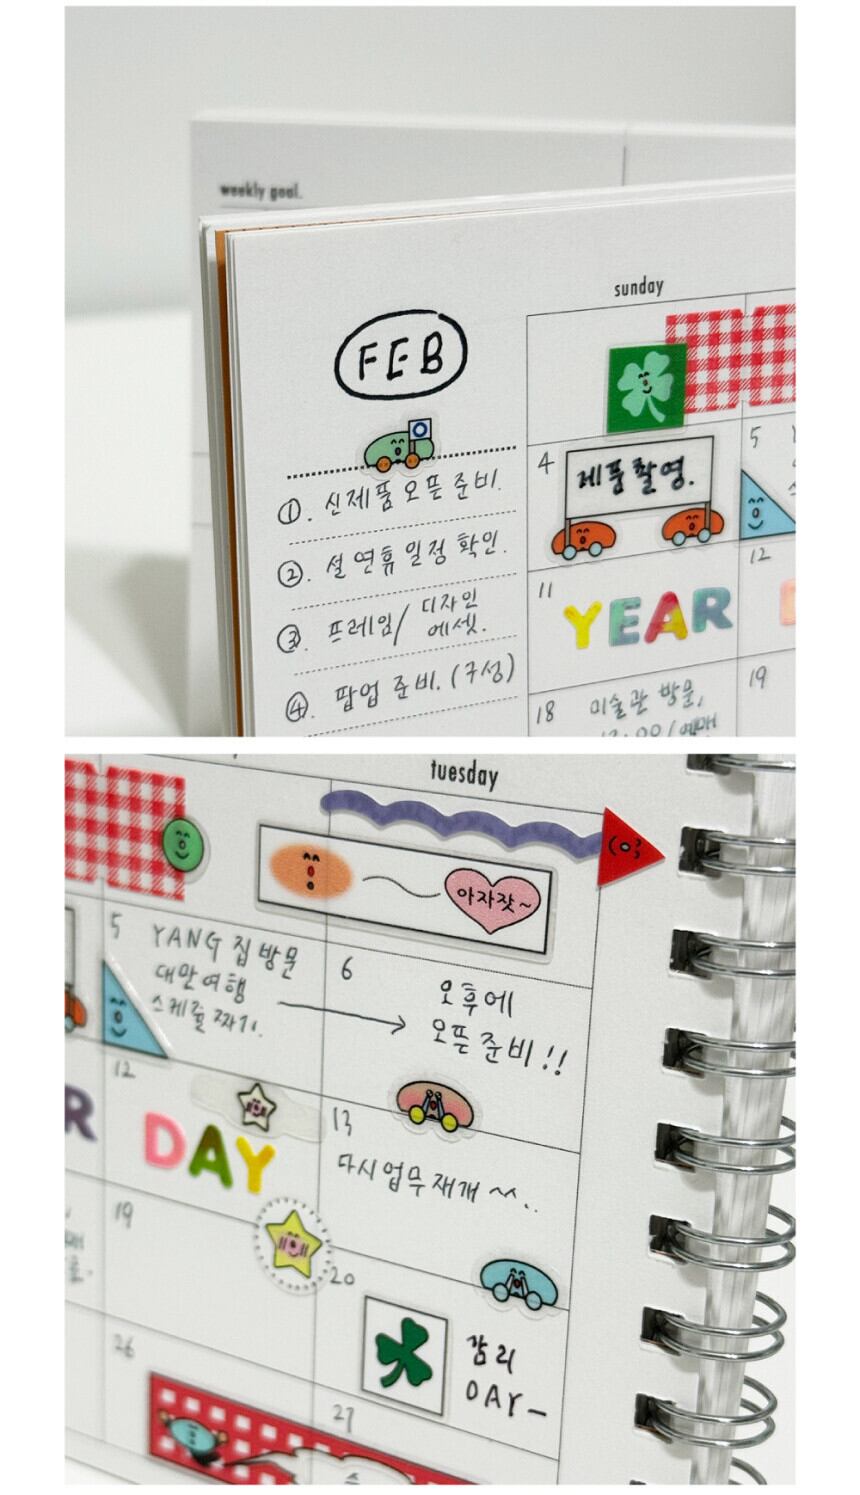 weekly goal.
sunday
FEB
①. 신제품 오픈 준비.
②. 설 연휴 일정 확인.
③. 프레임/ 디자인
에셋.
④. 팝업 준비. (구성)
4
제품촬영.
5
11
YEAR
12
18
미술관 방문,
19
tuesday
아자잣~
5
YANG 집 방문
대만여행
스케줄 짜기.
6
오후에
오픈 준비!!
R
12
DAY
13
다시 업무 재개 ^^..
19
20
감리
DAY-
26
27